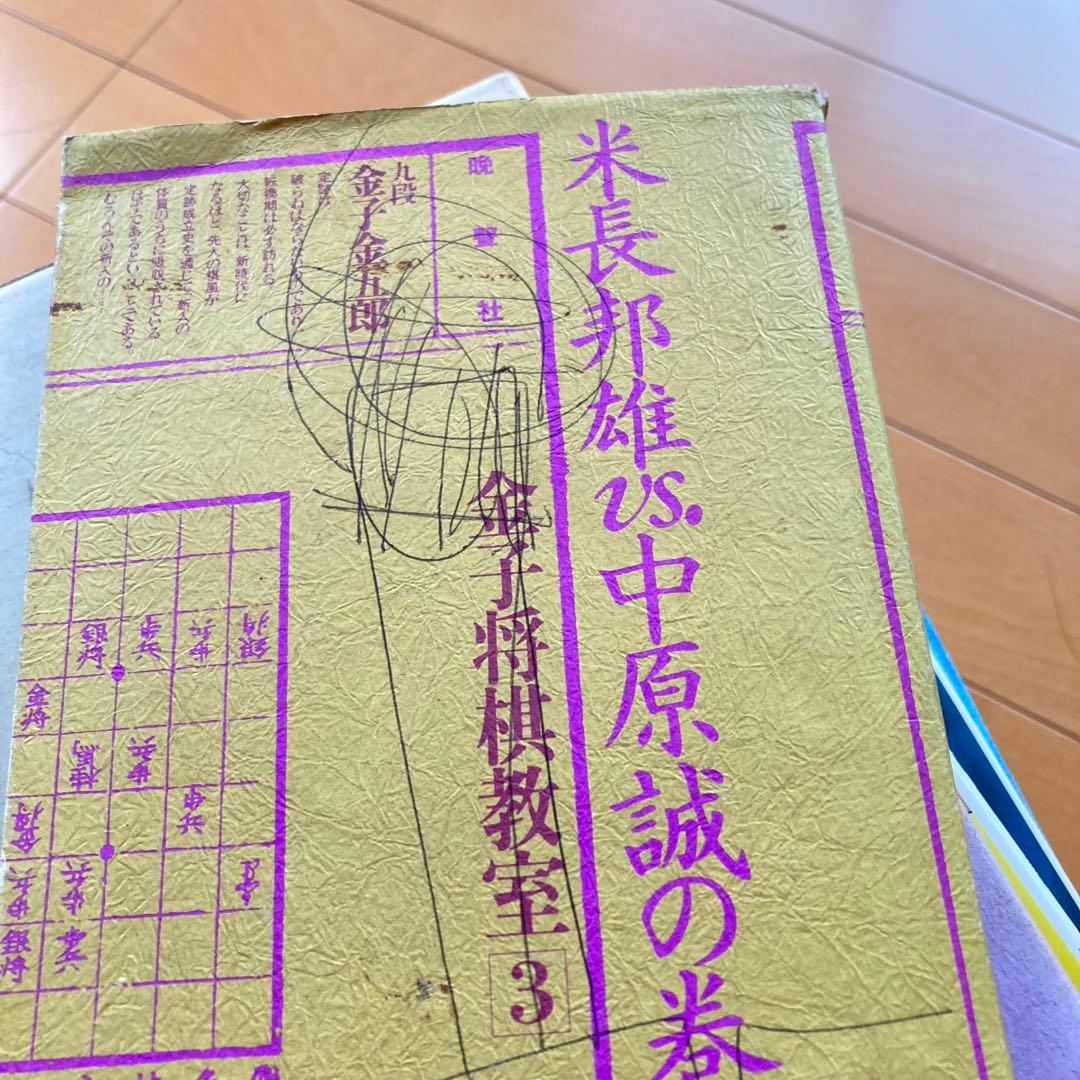 米長邦雄vs.中原誠の巻
金子将棋教室
3
晩聲社
九段
金子金五郎
定跡は
破らねばならないものであり
転換期は必ず訪れる
大切なことは、新時代に
なるほど、先人の棋風が
定跡成立史を通して、新人の
体質のうちに吸収されている
はずであるということである。
歩兵
歩兵
銀将
金将
桂馬
歩兵
歩兵
歩兵
銀将